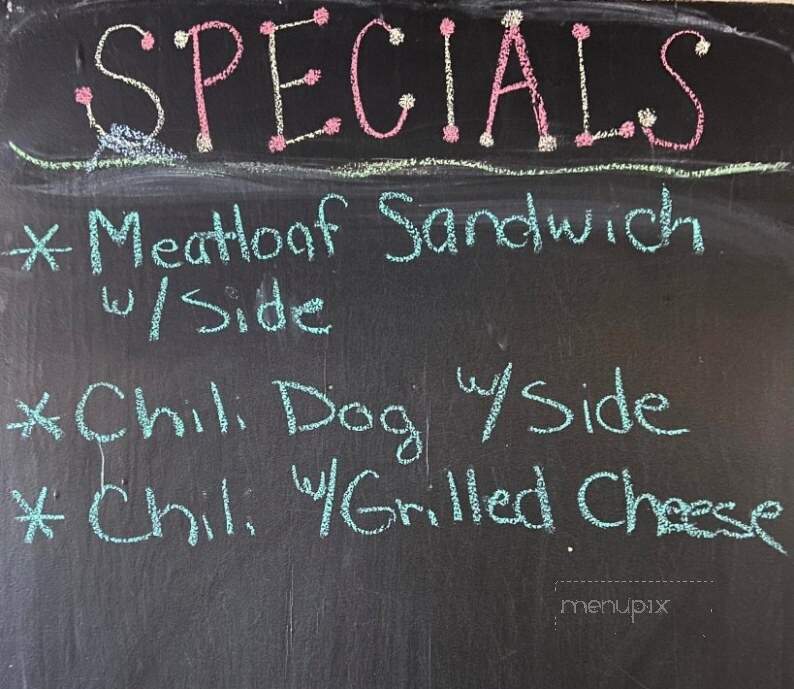 SPECIALS
* Meatloaf Sandwich
w/ Side
* Chili Dog w/ Side
* Chili w/ Grilled Cheese
menupix